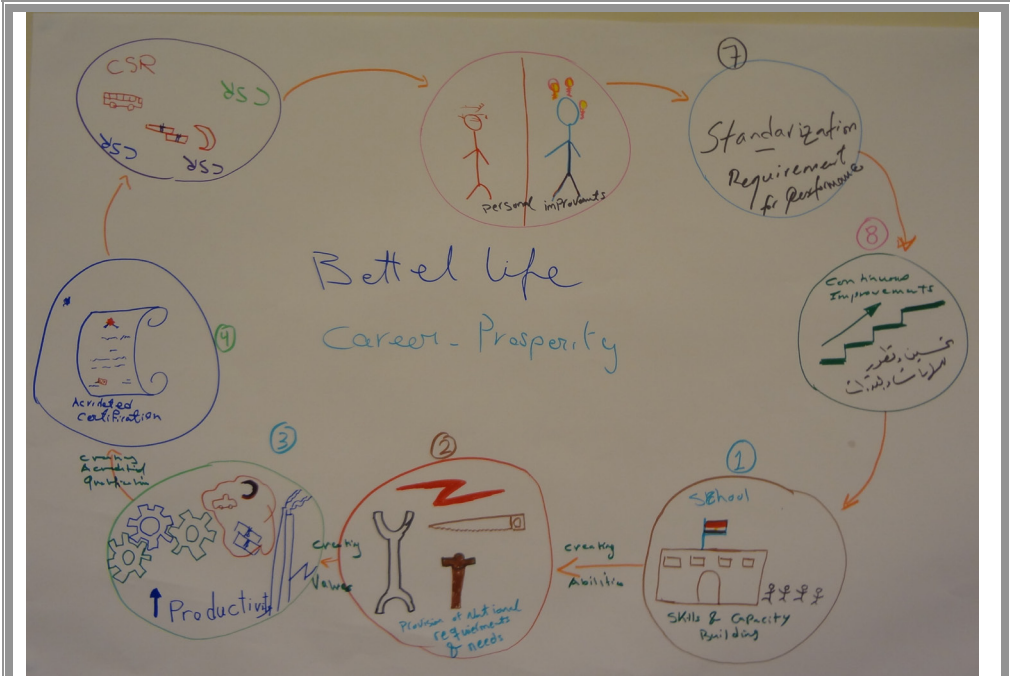 CSR
CSR
CSR
CSR
personal improvants
7
Standarization
Requirement
for Performance
8
Continuous
Improvements
تحسين وتطوير
Better life
Career - Prosperity
4
Acridated
Certification
Creating
Accredited
Qualification
3
Productivity
Creating
Values
2
Provision of National
requirements
& needs
Creating
Abilities
1
School
Skills & Capacity
Building